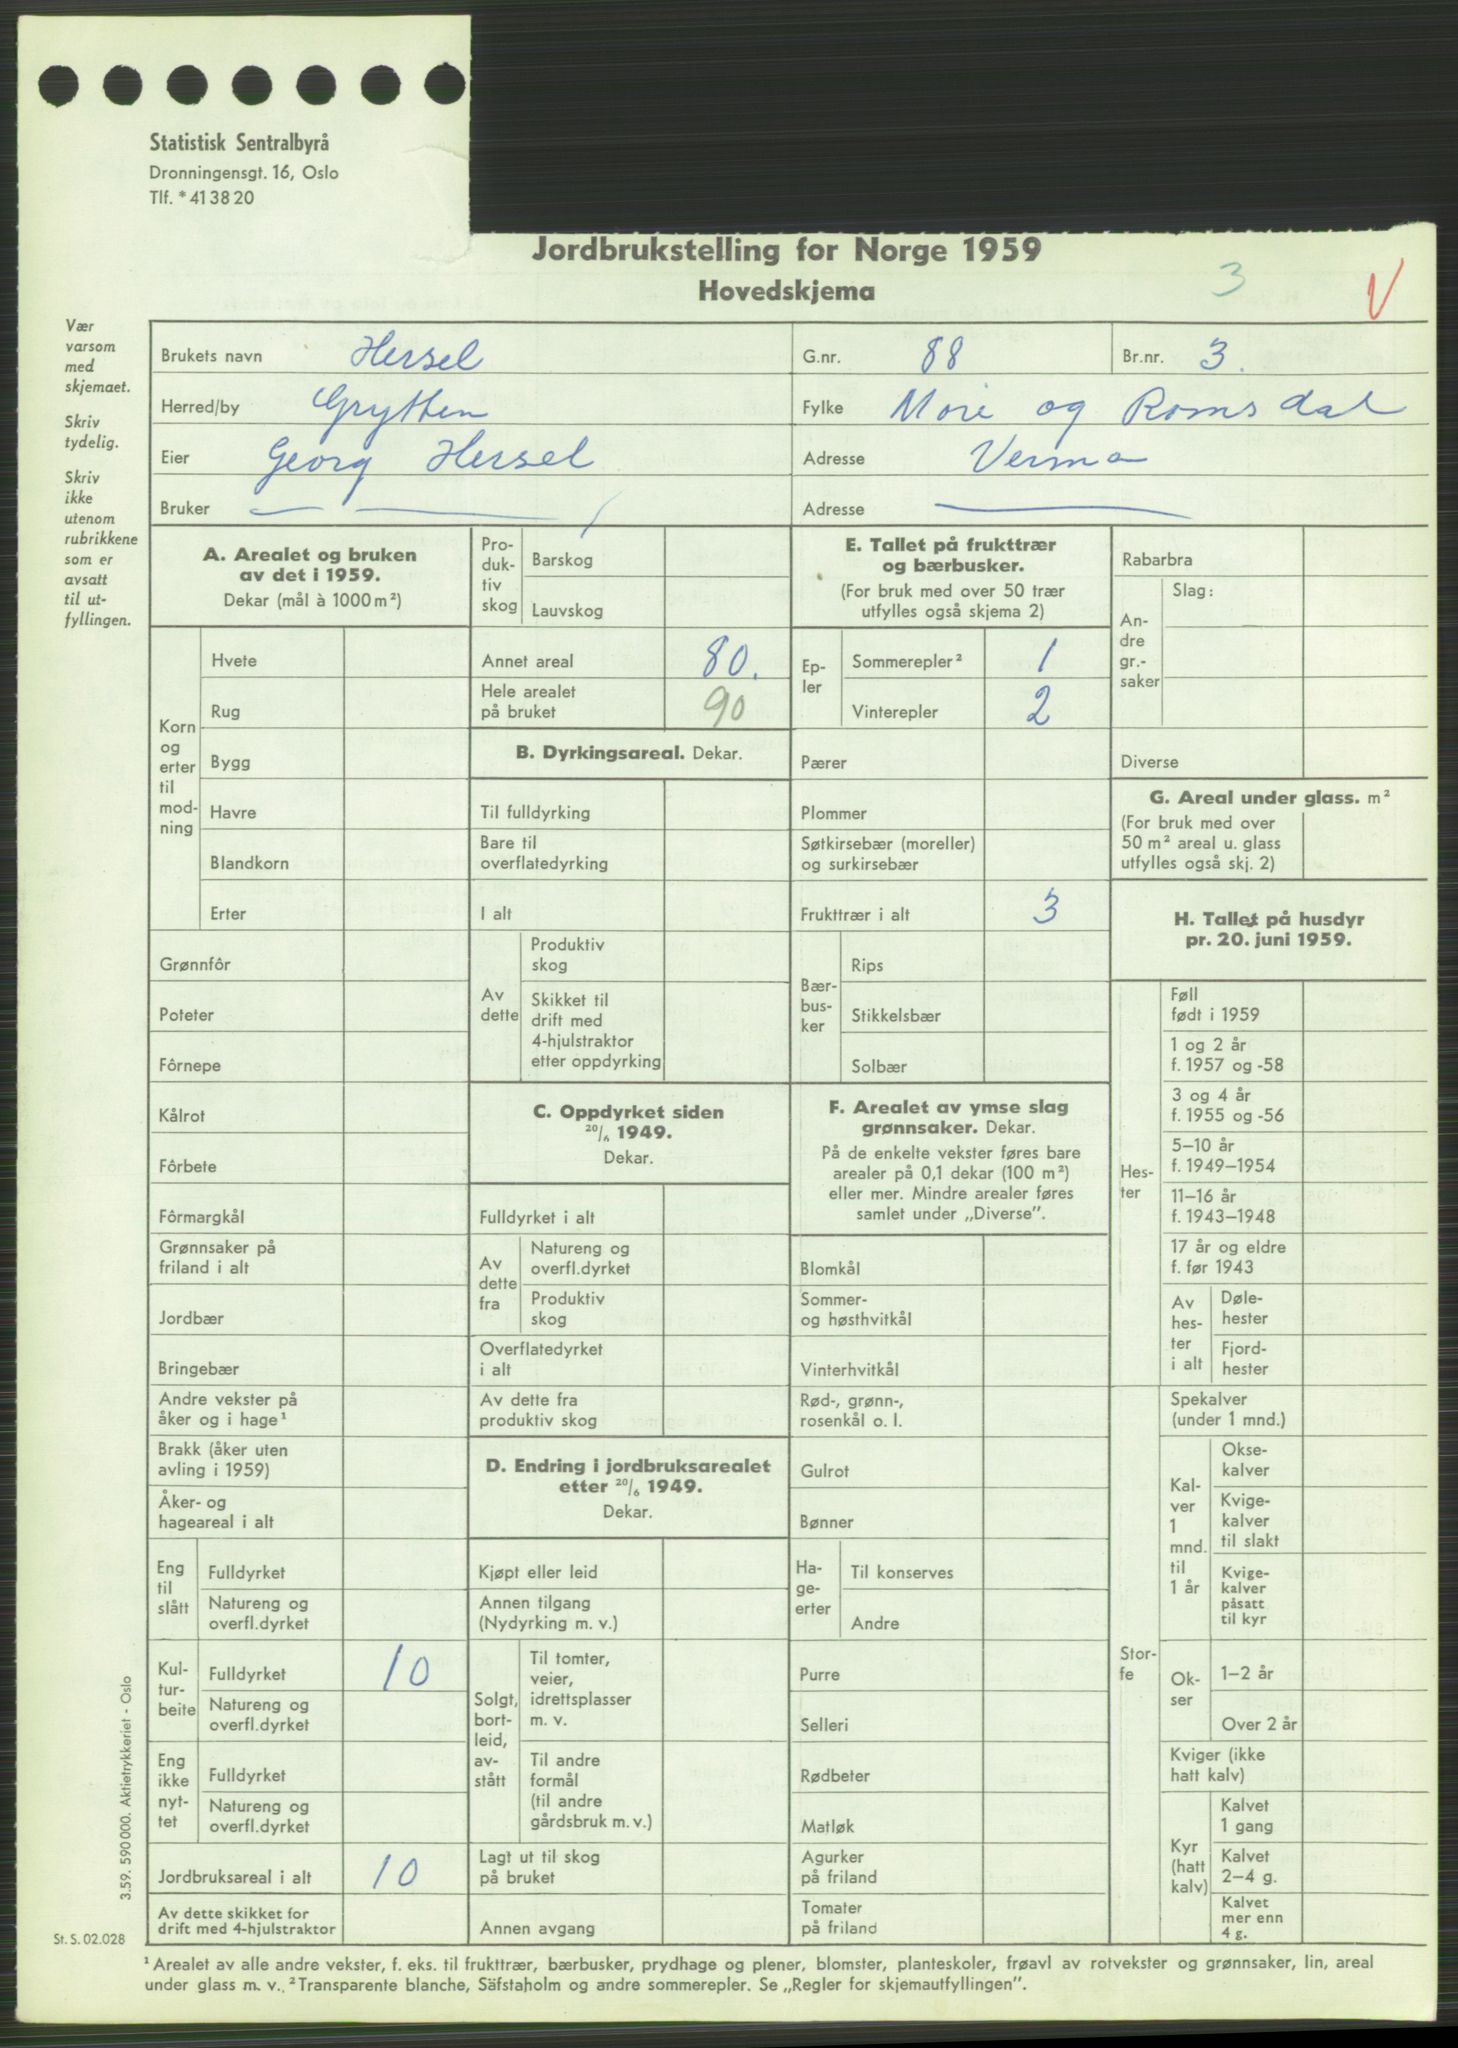 Statistisk Sentralbyrå
Dronningensgt. 16, Oslo
Tlf. *41 38 20
Jordbrukstelling for Norge 1959
Hovedskjema
3
V
Vær
varsom
med
skjemaet.
Skriv
tydelig.
Skriv
ikke
utenom
rubrikkene
som er
avsatt
til ut-
fyllingen.
Brukets navn Hersel G.nr. 88 Br.nr. 3.
Herred/by Grytten Fylke Möre og Romsdal
Eier Georg Hersel Adresse Verma
Bruker — — Adresse —
A. Arealet og bruken
av det i 1959.
Dekar (mål à 1000 m²)
Korn
og
erter
til
mod-
ning
Hvete
Rug
Bygg
Havre
Blandkorn
Erter
Grønnfôr
Poteter
Fôrnepe
Kålrot
Fôrbete
Fôrmargkål
Grønnsaker på
friland i alt
Jordbær
Bringebær
Andre vekster på
åker og i hage¹
Brakk (åker uten
avling i 1959)
Åker- og
hageareal i alt
Eng
til
slått
Fulldyrket
Natureng og
overfl.dyrket
Kul-
tur-
beite
Fulldyrket 10
Natureng og
overfl.dyrket
Eng
ikke
nyt-
tet
Fulldyrket
Natureng og
overfl.dyrket
Jordbruksareal i alt 10
Av dette skikket for
drift med 4-hjulstraktor
Pro-
duk-
tiv
skog
Barskog
Lauvskog
Annet areal 80.
Hele arealet
på bruket 90
B. Dyrkingsareal. Dekar.
Til fulldyrking
Bare til
overflatedyrking
I alt
Av
dette
Produktiv
skog
Skikket til
drift med
4-hjulstraktor
etter oppdyrking
C. Oppdyrket siden
20/6 1949.
Dekar.
Fulldyrket i alt
Av
dette
fra
Natureng og
overfl.dyrket
Produktiv
skog
Overflatedyrket
i alt
Av dette fra
produktiv skog
D. Endring i jordbruksarealet
etter 20/6 1949.
Dekar.
Kjøpt eller leid
Annen tilgang
(Nydyrking m. v.)
Solgt,
bort-
leid,
av-
stått
Til tomter,
veier,
idrettsplasser
m. v.
Til andre
formål
(til andre
gårdsbruk m. v.)
Lagt ut til skog
på bruket
Annen avgang
E. Tallet på frukttrær
og bærbusker.
(For bruk med over 50 trær
utfylles også skjema 2)
Ep-
ler
Sommerepler² 1
Vinterepler 2
Pærer
Plommer
Søtkirsebær (moreller)
og surkirsebær
Frukttrær i alt 3
Bær-
bus-
ker
Rips
Stikkelsbær
Solbær
F. Arealet av ymse slag
grønnsaker. Dekar.
På de enkelte vekster føres bare
arealer på 0,1 dekar (100 m²)
eller mer. Mindre arealer føres
samlet under „Diverse”.
Blomkål
Sommer-
og høsthvitkål
Vinterhvitkål
Rød-, grønn-,
rosenkål o. l.
Gulrot
Bønner
Ha-
ge-
erter
Til konserves
Andre
Purre
Selleri
Rødbeter
Matløk
Agurker
på friland
Tomater
på friland
Rabarbra
An-
dre
gr.-
saker
Slag:
Diverse
G. Areal under glass. m²
(For bruk med over
50 m² areal u. glass
utfylles også skj. 2)
H. Tallet på husdyr
pr. 20. juni 1959.
Hes-
ter
Føll
født i 1959
1 og 2 år
f. 1957 og -58
3 og 4 år
f. 1955 og -56
5–10 år
f. 1949–1954
11–16 år
f. 1943–1948
17 år og eldre
f. før 1943
Av
hes-
ter
i alt
Døle-
hester
Fjord-
hester
Stor-
fe
Spekalver
(under 1 mnd.)
Kal-
ver
1
mnd.
til
1 år
Okse-
kalver
Kvige-
kalver
til slakt
Kvige-
kalver
påsatt
til kyr
Ok-
ser
1–2 år
Over 2 år
Kviger (ikke
hatt kalv)
Kyr
(hatt
kalv)
Kalvet
1 gang
Kalvet
2–4 g.
Kalvet
mer enn
4 g.
3.59. 590 000. Aktietrykkeriet - Oslo
St. S. 02.028
¹ Arealet av alle andre vekster, f. eks. til frukttrær, bærbusker, prydhage og plener, blomster, planteskoler, frøavl av rotvekster og grønnsaker, lin, areal
under glass m. v. ² Transparente blanche, Säfstaholm og andre sommerepler. Se „Regler for skjemautfyllingen”.